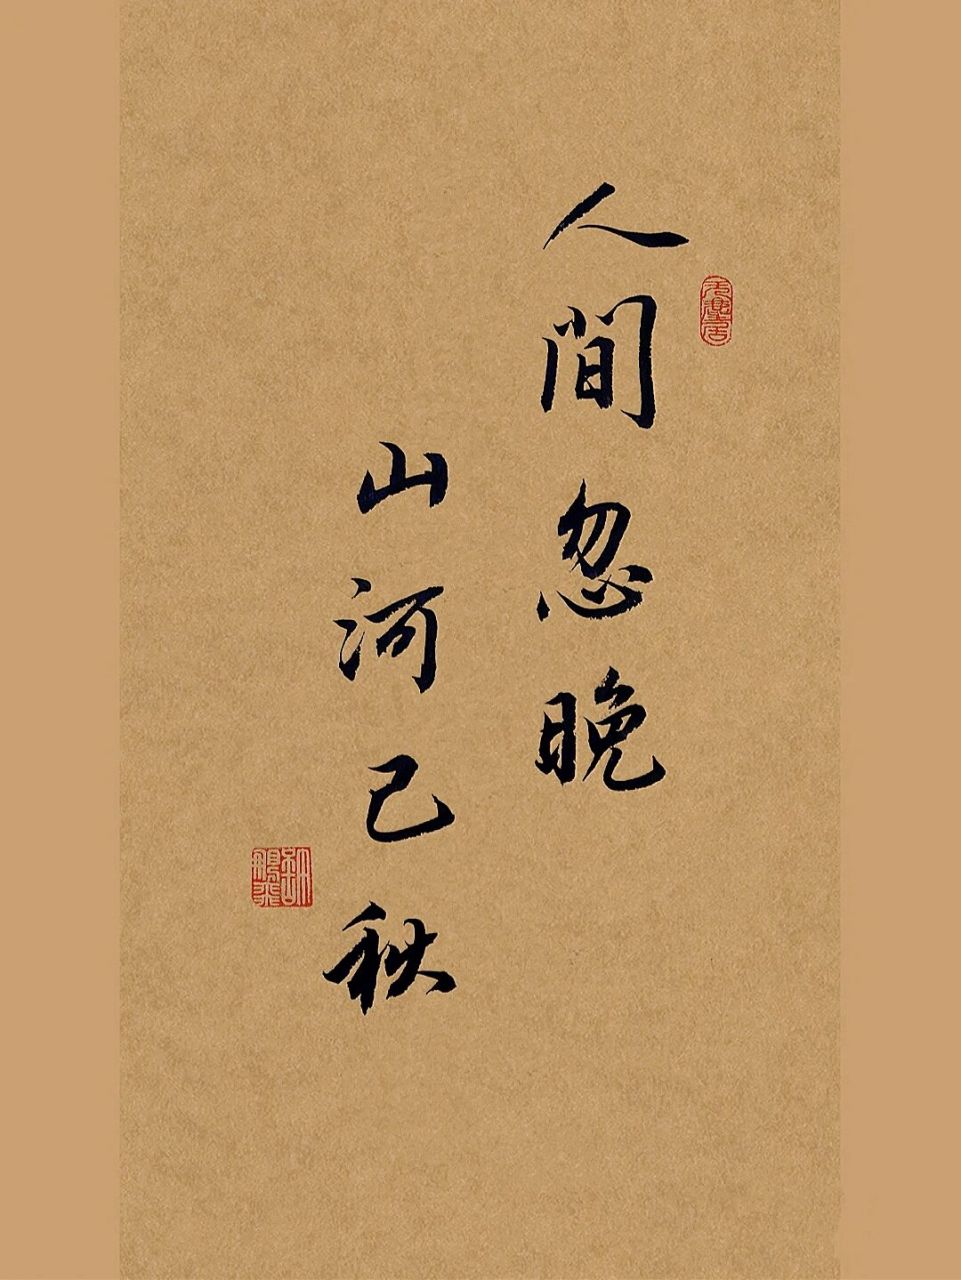 人間忽晚
山河已秋